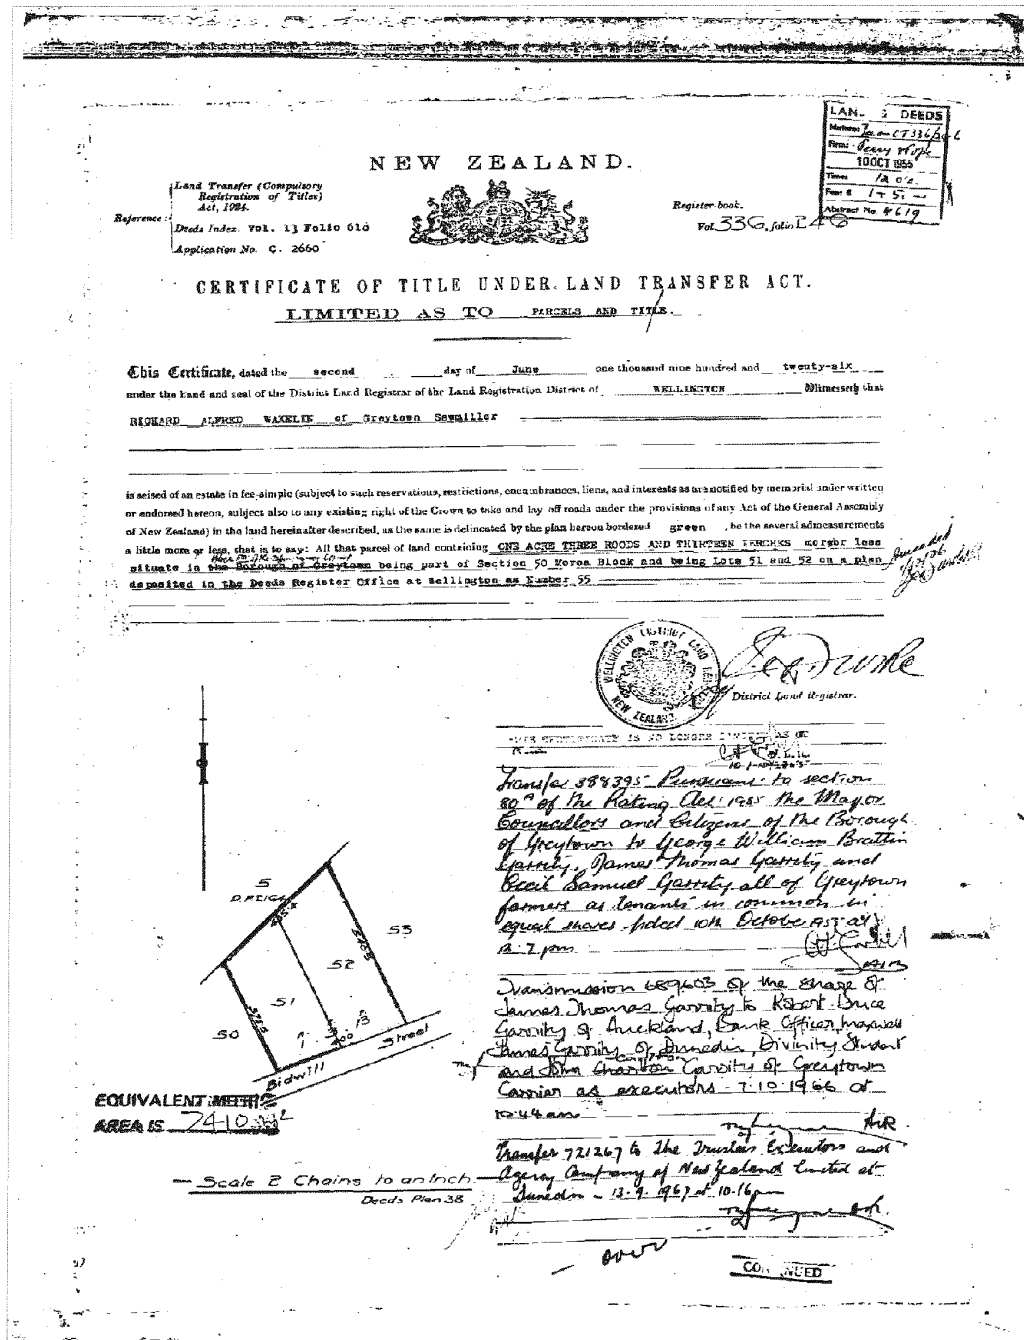 LAND & DEEDS
Nature:
Firm: Perry
10 OCT 1955
Time:
Fees £ 1 - 5 -
Abstract No. 4619
NEW ZEALAND.
Land Transfer (Compulsory
Registration of Titles)
Act, 1924.
Reference:
Deeds Index. Vol. 13 Folio 618
Application No. C. 2660
Register-book.
Vol. 336, folio 246
CERTIFICATE OF TITLE UNDER LAND TRANSFER ACT.
LIMITED AS TO PARCELS AND TITLE.
This Certificate, dated the second day of June one thousand nine hundred and twenty-six
under the hand and seal of the District Land Registrar of the Land Registration District of WELLINGTON Witnesseth that
RICHARD ALFRED WAKELIN of Greytown Sawmiller
is seised of an estate in fee-simple (subject to such reservations, restrictions, encumbrances, liens, and interests as are notified by memorial under written
or endorsed hereon, subject also to any existing right of the Crown to take and lay off roads under the provisions of any Act of the General Assembly
of New Zealand) in the land hereinafter described, as the same is delineated by the plan hereon bordered green , be the several admeasurements
a little more or less, that is to say: All that parcel of land containing ONE ACRE THREE ROODS AND THIRTEEN PERCHES more or less
situate in the Borough of Greytown being part of Section 50 Moroa Block and being Lots 51 and 52 on a plan
deposited in the Deeds Register Office at Wellington as Number 55
WELLINGTON DISTRICT LAND REGISTRAR
NEW ZEALAND
District Land Registrar.
THIS CERTIFICATE IS NO LONGER LIMITED AS TO
Transfer 388395 Pursuant to section
80A of the Rating Act 1925 the Mayor
Councillors and Citizens of the Borough
of Greytown to George William Brattin
Garrity, James Thomas Garrity and
Cecil Samuel Garrity all of Greytown
farmers as tenants in common in
equal shares 10th October 1955 at
12.7 pm
A.L.R.
Transmission 689603 of the share of
James Thomas Garrity to Robert Bruce
Garrity of Auckland, Bank Officer, Maxwell
James Garrity of Dunedin, Divinity Student
and John Garrity of Greytown
Carrier as executors - 7.10.1966 at
10.44 am
A.L.R.
Transfer 721267 to The Trustees Executors and
Agency Company of New Zealand Limited at
Dunedin - 13.9.1967 at 10.16
5
D.P.
53
52
51
50
1. 3. 13
Bidwill Street
EQUIVALENT METRIC
AREA IS 7410 m2
Scale 2 Chains to an Inch
Deeds Plan 38
over
CONTINUED